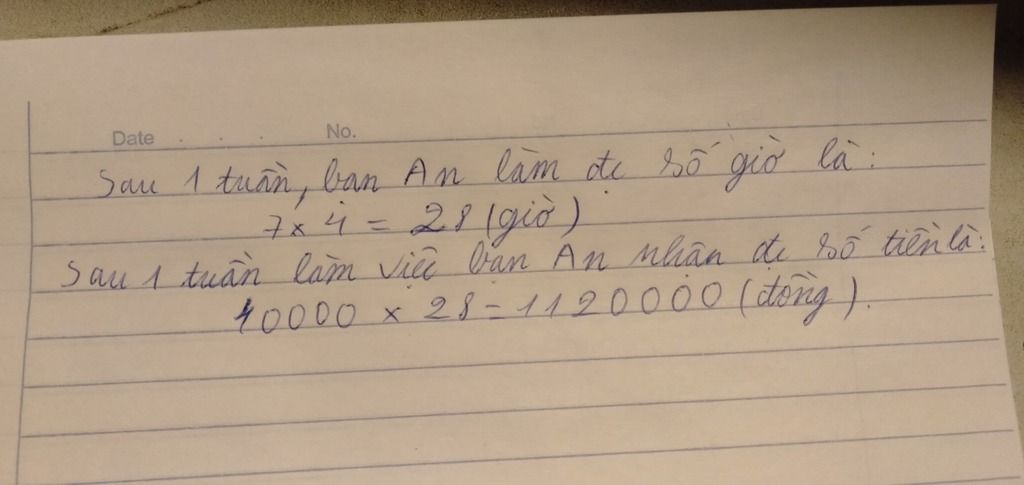 Date . . . No.
Sau 1 tuần, bạn An làm đc số giờ là:
7 x 4 = 28 (giờ)
Sau 1 tuần làm việc bạn An nhận đc số tiền là:
40000 x 28 = 1120000 (đồng).